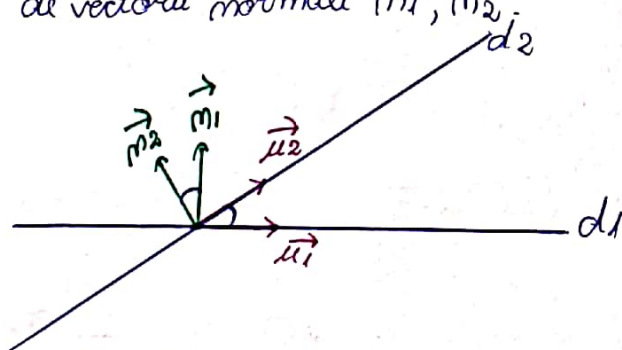 de vectorii normali n⃗1, n⃗2.
d2
n⃗2 n⃗1
μ⃗2
d1
μ⃗1